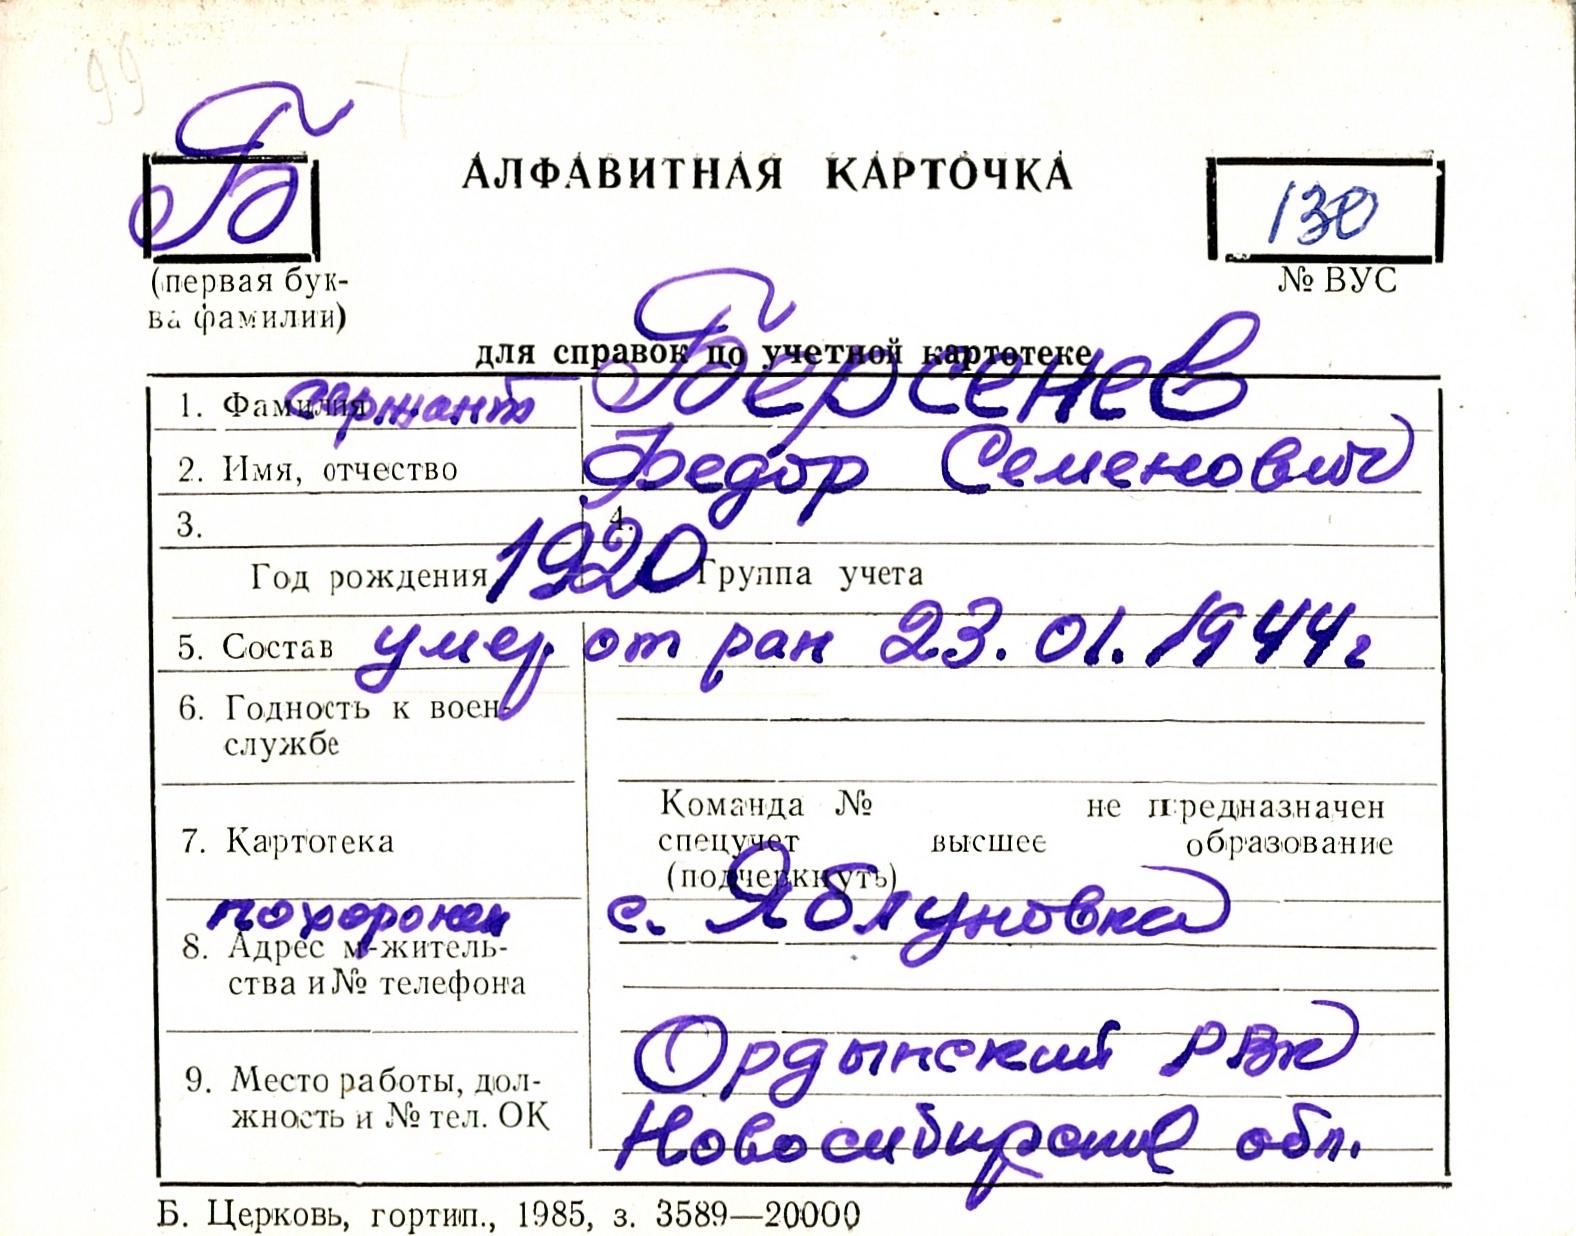 99
Б
АЛФАВИТНАЯ КАРТОЧКА
130
(первая бук-
ва фамилии)
№ ВУС
для справок по учетной картотеке
1. Фамилия сержант Берсенев
2. Имя, отчество Федор Семенович
3. 4.
Год рождения 1920 Группа учета
5. Состав умер от ран 23.01.1944г
6. Годность к воен-
службе
Команда № не предназначен
7. Картотека спецучет высшее образование
(подчеркнуть)
похоронен с. Яблуновка
8. Адрес м-житель-
ства и № телефона
Ордынский РВК
9. Место работы, дол-
жность и № тел. ОК
Новосибирской обл.
Б. Церковь, гортип., 1985, з. 3589—20000